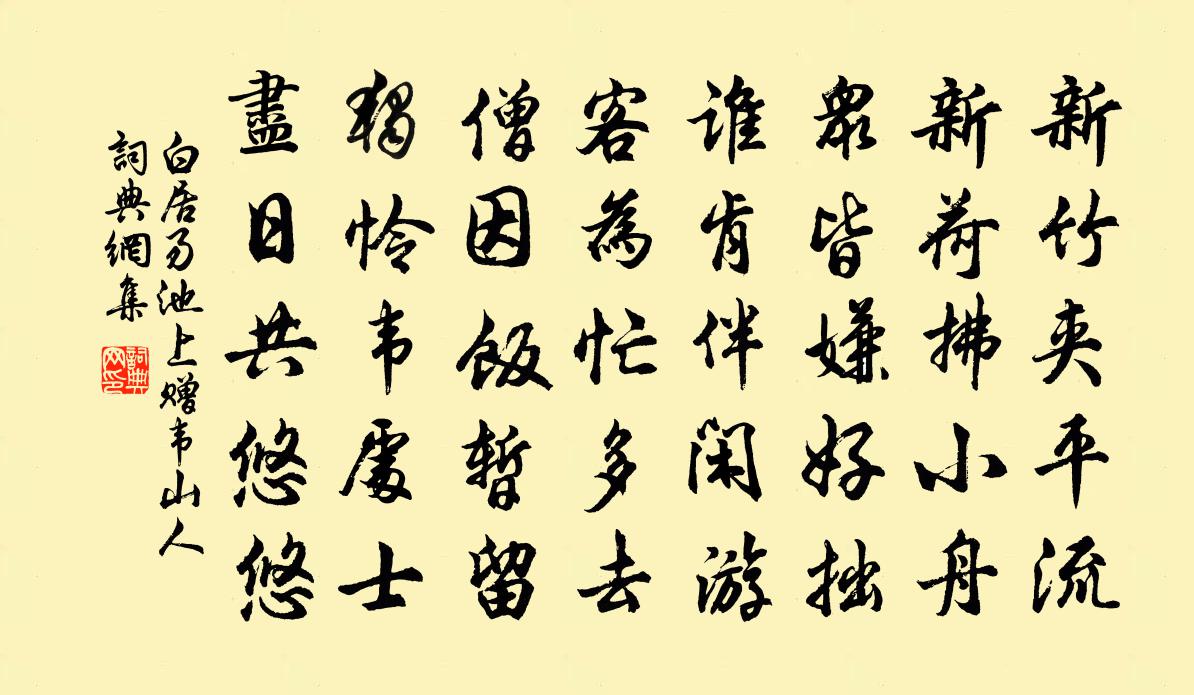 新竹夹平流
新荷拂小舟
眾皆嫌好拙
谁肯伴闲游
客為忙多去
僧因飯暫留
獨怜韦處士
盡日共悠悠
白居易池上赠韦山人
詞典網集
詞典网印